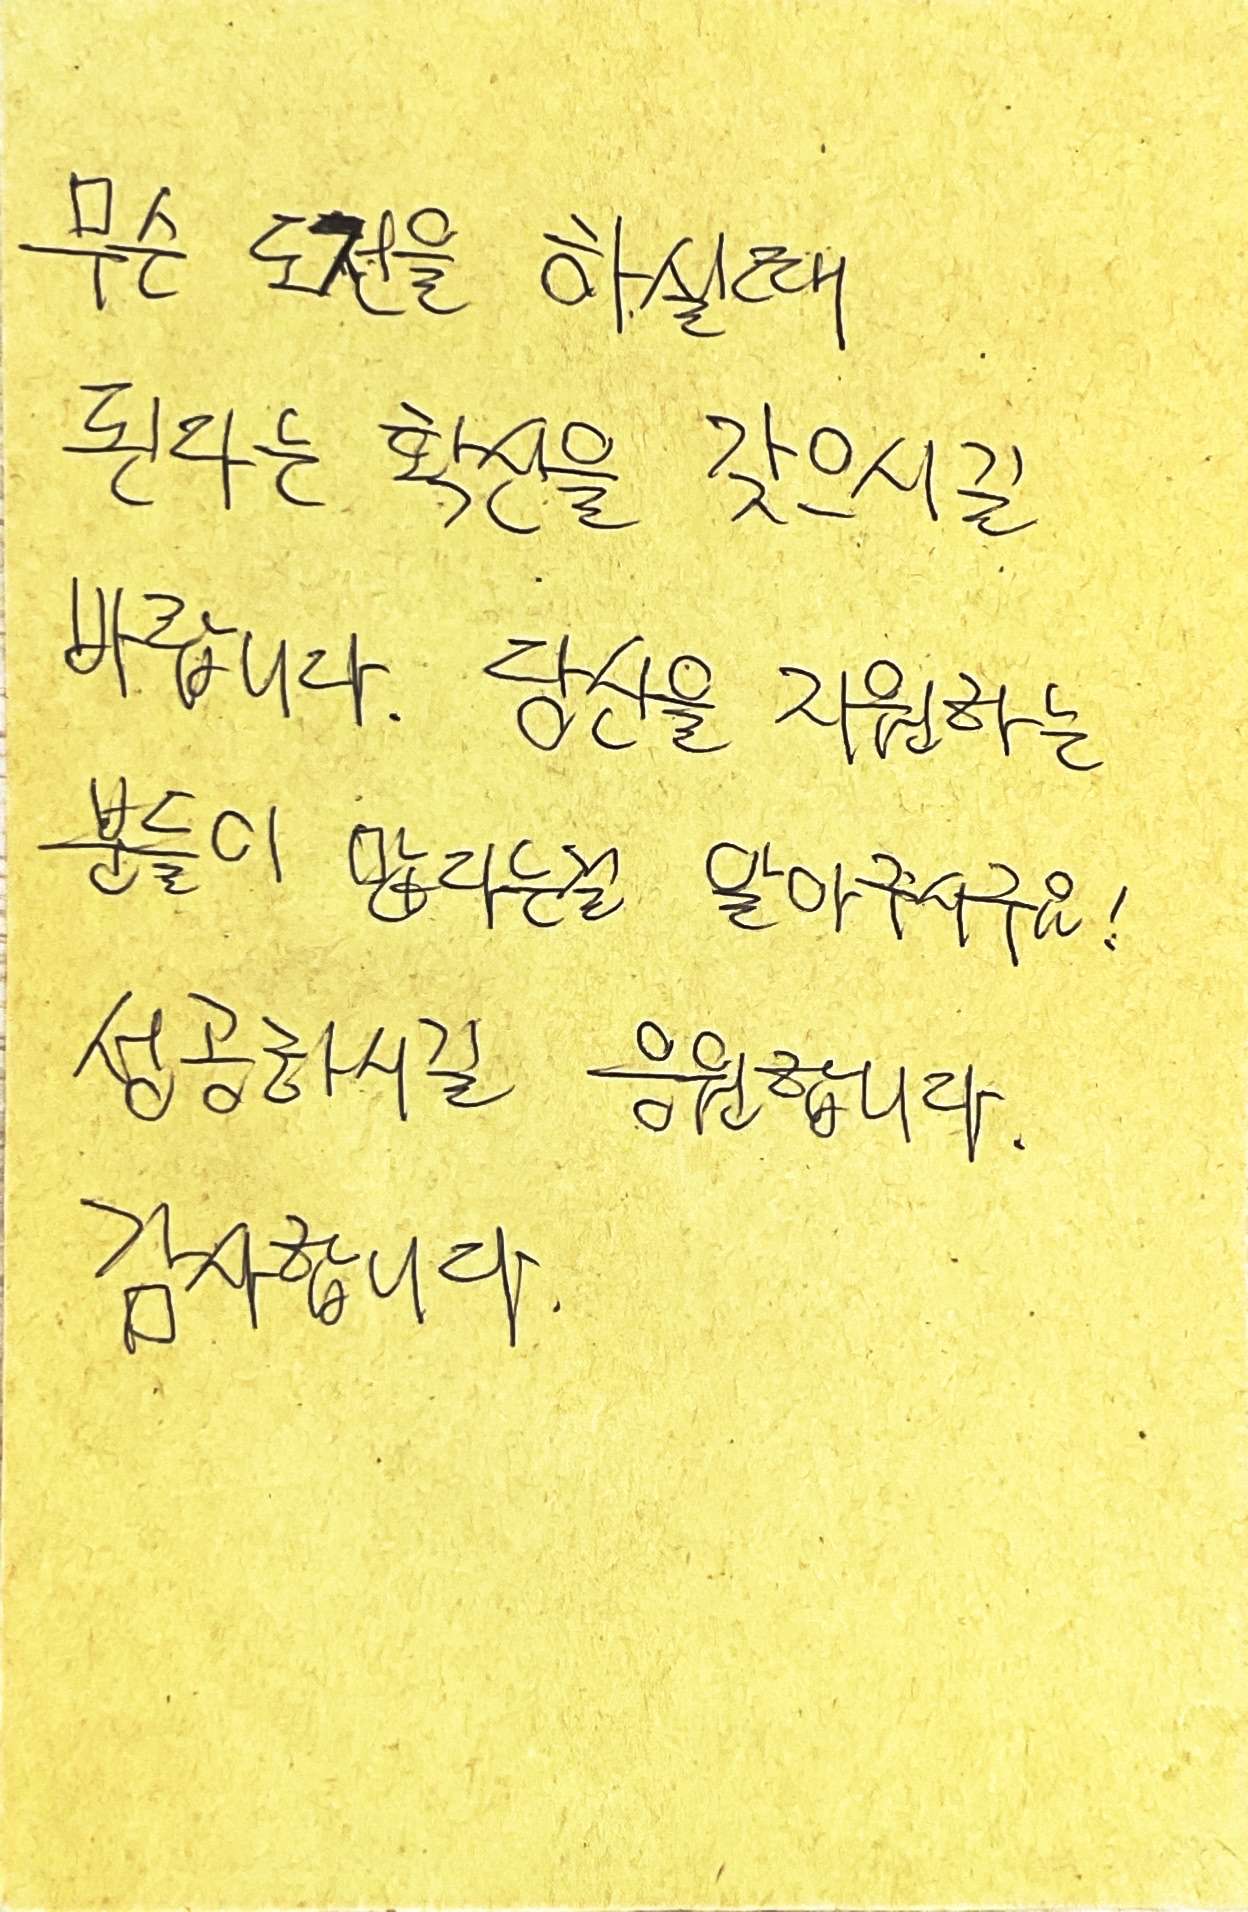 무슨 도전을 하실때
된다는 확신을 갖으시길
바랍니다. 당신을 지원하는
분들이 많다는걸 알아주시구요!
성공하시길 응원합니다.
감사합니다.